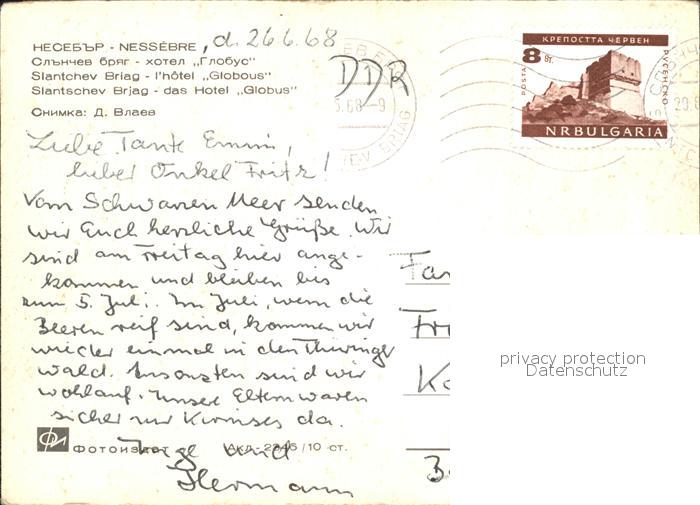 НЕСЕБЪР - NESSÈBRE, d. 26.6.68
Слънчев бряг - хотел „Глобус"
Slantchev Briag - l'hôtel „Globous"
Slantschev Brjag - das Hotel „Globus"
Снимка: Д. Влаев
DDR
КРЕПОСТТА ЧЕРВЕН
8 ст.
ПОСТА
РУСЕНСКО
NRBULGARIA
Liebe Tante Emmi,
lieber Onkel Fritz!
Vom Schwarzen Meer senden
wir Euch herzliche Grüße. Wir
sind am Freitag hier ange-
kommen und bleiben bis
zum 5. Juli. Im Juli, wenn die
Beeren reif sind, kommen wir
wieder einmal in den Thüringer
wald. Ansonsten sind wir
wohlauf. Unsere Eltern waren
sicher zur Kirmses da.
Inge und
Hermann
ФОТОИЗДАТ АКЛ. 2246/10 ст.
privacy protection
Datenschutz